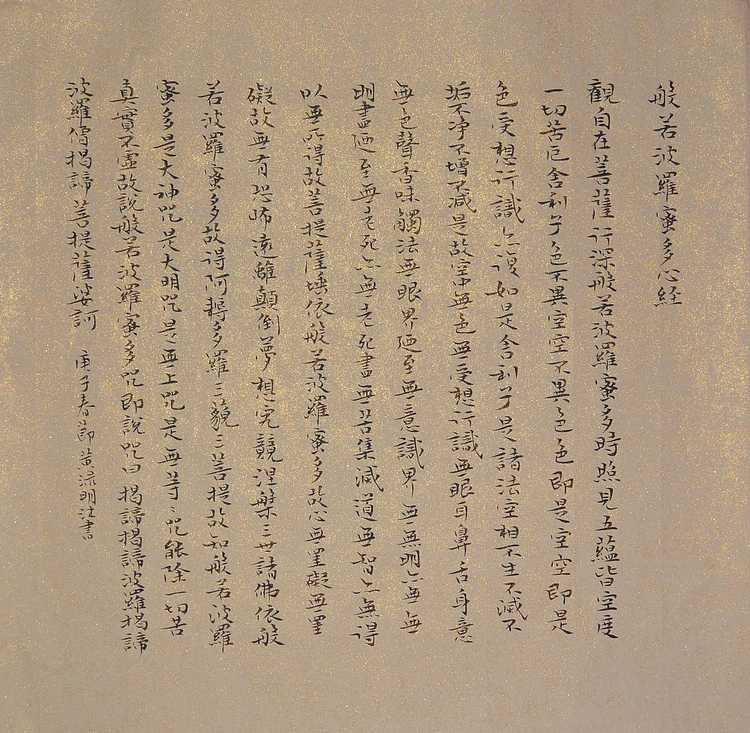 般若波羅蜜多心経
觀自在菩薩行深般若波羅蜜多時照見五蘊皆空度
一切苦厄舍利子色不異空空不異色色即是空空即是
色受想行識亦復如是舍利子是諸法空相不生不滅不
垢不净不增不減是故空中無色無受想行識無眼耳鼻舌身意
無色聲香味觸法無眼界廼至無意識界無無明亦無無
明盡廼至無老死亦無老死盡無苦集滅道無智亦無得
以無所得故菩提薩埵依般若波羅蜜多故心無罣礙無罣
礙故無有恐怖遠離顛倒夢想究竟涅槃三世諸佛依般
若波羅蜜多故得阿耨多羅三藐三菩提故知般若波羅
蜜多是大神咒是大明咒是無上咒是無等等咒能除一切苦
真實不虛故說般若波羅蜜多咒即說咒曰揭諦揭諦波羅揭諦
波羅僧揭諦菩提薩婆訶 庚子春節黃明書